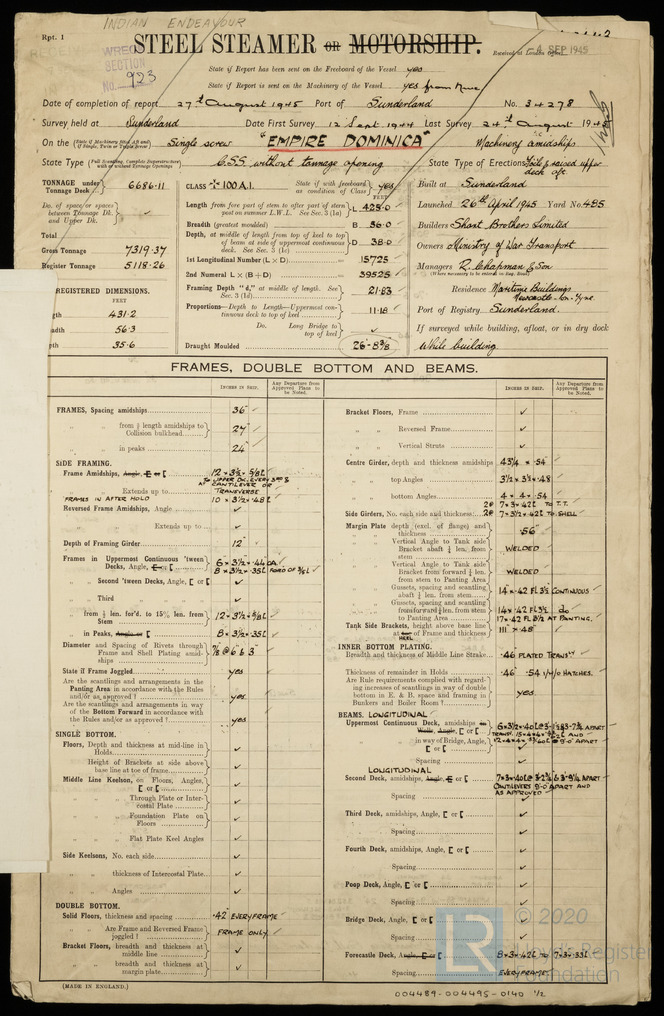 INDIAN ENDEAVOUR
Rpt. 1
WRECK SECTION
No. 923
STEEL STEAMER or MOTORSHIP.
Received at London Office
4 SEP 1945
State if Report has been sent on the Freeboard of the Vessel yes
State if Report is sent on the Machinery of the Vessel yes from
Date of completion of report 27th August 1945 Port of Sunderland No. 34278
Survey held at Sunderland Date First Survey 12 Sept 1944 Last Survey 24th August 1945
On the (State if Machinery fitted Aft and if Single, Twin or Triple Screw) Single screw "EMPIRE DOMINICA" Machinery amidships
State Type (Full Scantling, Complete Superstructure with or without Tonnage Openings) C.S.S. without tonnage opening State Type of Erections Fcsle & raised upper deck aft.
TONNAGE under Tonnage Deck 6686.11
Do. of space or spaces between Tonnage Dk. and Upper Dk.
Total
Gross Tonnage 7319.37
Register Tonnage 5118.26
REGISTERED DIMENSIONS.
FEET
gth 431.2
adth 56.3
pth 35.6
CLASS ✠ 100 A.1. State if with freeboard as condition of Class yes
FEET
Length from fore part of stem to after part of stern post on summer L.W.L. See Sec. 3 (1a) L 425.0
Breadth (greatest moulded) B 56.0
Depth, at middle of length from top of keel to top of beam at side of uppermost continuous deck. See Sec. 3 (1c) D 38.0
1st Longitudinal Number (L × D) 15725
2nd Numeral L × (B + D) 39525
Framing Depth "d," at middle of length. See Sec. 3 (1d) 21.83
Proportions—Depth to Length—Uppermost continuous deck to top of keel 11.18
Do. Long Bridge to top of keel
Draught Moulded 26'-8 3/8
Built at Sunderland
Launched 26th April 1945 Yard No. 485
Builders Short Brothers Limited
Owners Ministry of War Transport
Managers R. Chapman & Son
(Where necessary to be entered in Reg. Book)
Residence Maritime Buildings Newcastle-on-Tyne
Port of Registry Sunderland.
If surveyed while building, afloat, or in dry dock
While building
FRAMES, DOUBLE BOTTOM AND BEAMS.
INCHES IN SHIP. Any Departure from Approved Plans to be Noted.
FRAMES, Spacing amidships 36"
" " from ½ length amidships to Collision bulkhead 27"
" " in peaks 24"
SIDE FRAMING.
Frame Amidships, Angle, E or [ 12 × 3½ × 5/8 [
TO UPPER DK. EVERY 3RD & AT CANTILEVER OR TRANSVERSE
" " Extends up to
FRAMES IN AFTER HOLD 10 × 3½ × .48 [
Reversed Frame Amidships, Angle
" " Extends up to
Depth of Framing Girder 12"
Frames in Uppermost Continuous 'tween Decks, Angle, E or [ 6 × 3½ × .44 OA.
8 × 3½ × .35 [ FORD OF 3/5 L
" Second 'tween Decks, Angle, [ or [
" Third " " "
" from ½ len. for'd. to 15% len. from Stem 12 × 3½ × 5/8 [
" in Peaks, Angle or [ 8 × 3½ × .35 [
Diameter and Spacing of Rivets through Frame and Shell Plating amidships 7/8 @ 6 & 5"
State if Frame Joggled yes
Are the scantlings and arrangements in the Panting Area in accordance with the Rules and/or as approved? yes
Are the scantlings and arrangements in way of the Bottom Forward in accordance with the Rules and/or as approved? yes
SINGLE BOTTOM.
Floors, Depth and thickness at mid-line in Holds
" Height of Brackets at side above base line at toe of frame
Middle Line Keelson, on Floors, Angles, [ or [
" " Through Plate or Intercostal Plate
" " Foundation Plate on Floors
" " Flat Plate Keel Angles
Side Keelsons, No. each side
" " thickness of Intercostal Plate
" " Angles
DOUBLE BOTTOM.
Solid Floors, thickness and spacing .42 EVERY FRAME
" " Are Frame and Reversed Frame joggled? FRAME ONLY
Bracket Floors, breadth and thickness at middle line
" " breadth and thickness at margin plate
INCHES IN SHIP. Any Departure from Approved Plans to be Noted.
Bracket Floors, Frame
" " Reversed Frame
" " Vertical Struts
Centre Girder, depth and thickness amidships 43¼ × .54
" " top Angles 3½ × 3½ × .48
" " bottom Angles 4 × 4 × .54
2@ 7 × 3 × .42 [ TO T.T.
Side Girders, No. each side and thickness 2@ 7 × 3½ × .42 [ TO SHELL
Margin Plate depth (excl. of flange) and thickness .56"
" " Vertical Angle to Tank side Bracket abaft ¼ len. from stem WELDED
" " Vertical Angle to Tank side Bracket from forward ¼ len. from stem to Panting Area WELDED
" " Gussets, spacing and scantling abaft ¼ len. from stem 14 × .42 FL 3½ CONTINUOUS
" " Gussets, spacing and scantling from forward ¼ len. from stem to Panting Area 14 × .42 FL 3½ do
17 × .42 FL 3½ AT PANTING.
Tank Side Brackets, height above base line at toe of Frame and thickness 111" × .48"
HEEL
INNER BOTTOM PLATING.
Breadth and thickness of Middle Line Strake .46 PLATED TRANSLY
Thickness of remainder in Holds .46" .54 I/W/O HATCHES.
Are Rule requirements complied with regarding increases of scantlings in way of double bottom in E. & B. space and framing in Bunkers and Boiler Room? yes.
BEAMS. LONGITUDINAL
Uppermost Continuous Deck, amidships in Wells, Angle, [ or [ 6 × 3½ × .40 [ @ 3'-1½ & 3'-7¾ APART
" " in way of Bridge, Angle, [ or [
" " Spacing
LONGITUDINAL
Second Deck, amidships, Angle, E or [ 7 × 3 × .40 [ @ 3'-2¾ & 3'-9¼ APART
" " Spacing CANTILEVERS 9'-0" APART AND AS APPROVED
Third Deck, amidships, Angle, [ or [
" " Spacing
Fourth Deck, amidships, Angle, [ or [
" " Spacing
Poop Deck, Angle, [ or [
" " Spacing
Bridge Deck, Angle, [ or [
" " Spacing
Forecastle Deck, Angle, E or [ 8 × 3 × .42 [ TO 7 × 3 × .33 [
" " Spacing EVERY FRAME
(MADE IN ENGLAND.)
004489-004495-0140 1/2
LR © 2020
Lloyd's Register
Foundation